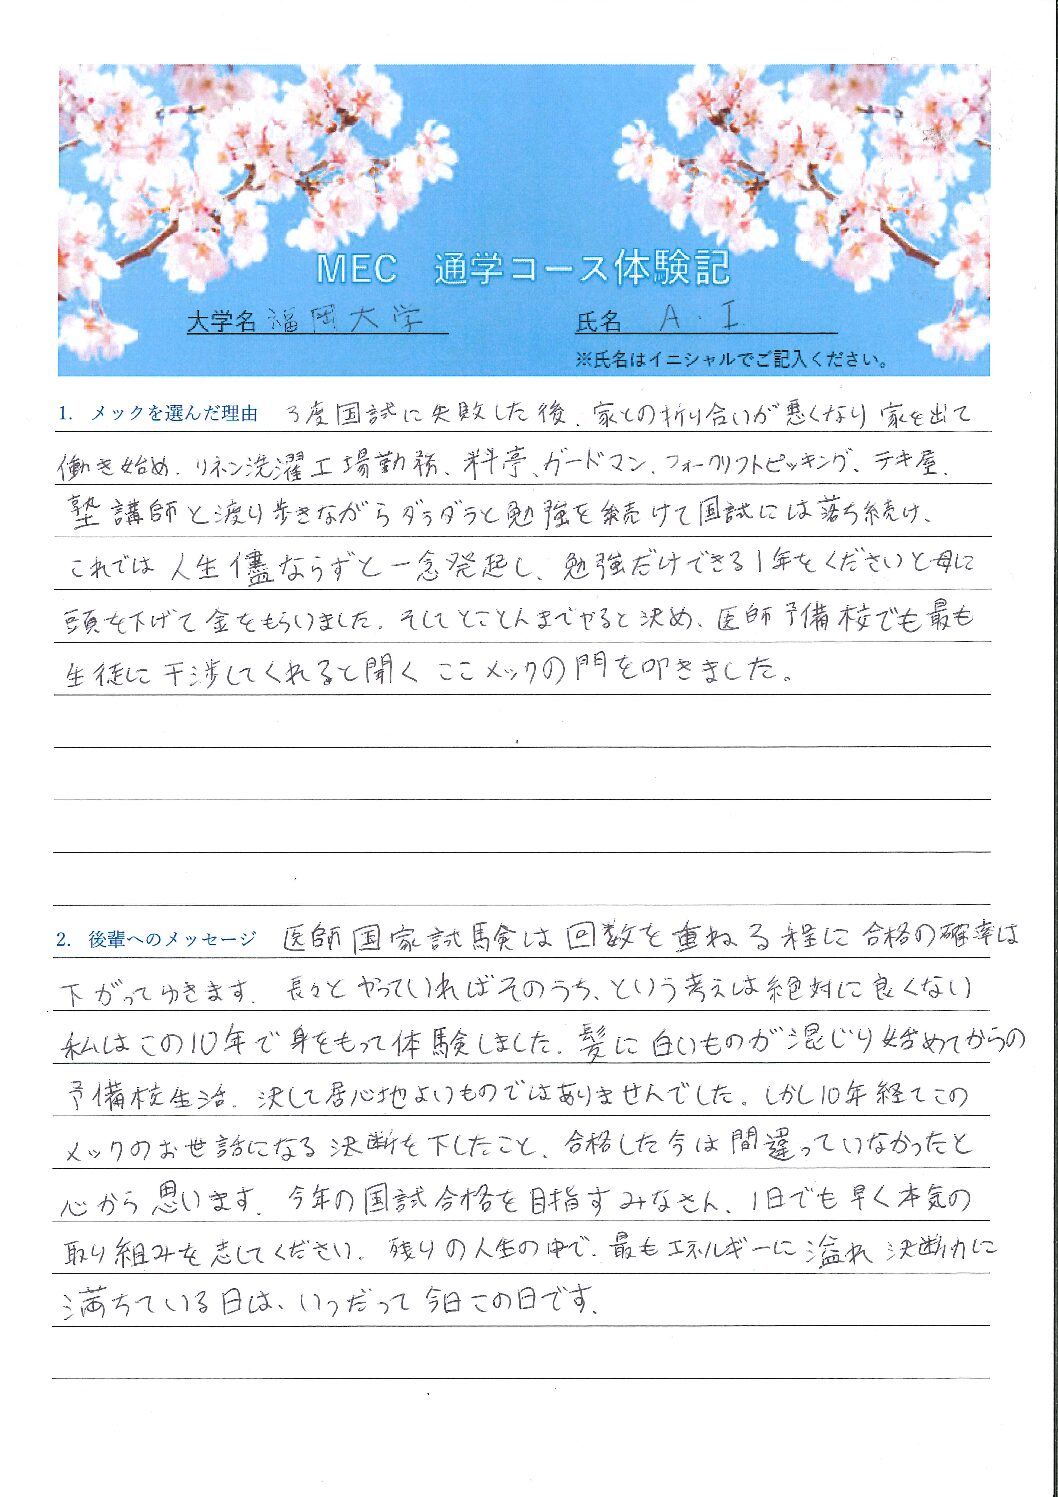 MEC 通学コース体験記
大学名 福岡大学 氏名 A.I
※氏名はイニシャルでご記入ください。
1. メックを選んだ理由 3度国試に失敗した後、家との折り合いが悪くなり家を出て
働き始め、リネン洗濯工場勤務、料亭、ガードマン、フォークリフトピッキング、テキ屋、
塾講師と渡り歩きながらダラダラと勉強を続けて国試には落ち続け、
これでは人生儘ならずと一念発起し、勉強だけできる1年をくださいと母に
頭を下げて金をもらいました。そしてとことんまでやると決め、医師予備校でも最も
生徒に干渉してくれると聞くここメックの門を叩きました。
2. 後輩へのメッセージ 医師国家試験は回数を重ねる程に合格の確率は
下がってゆきます。長々とやっていればそのうち、という考えは絶対に良くない
私はこの10年で身をもって体験しました。髪に白いものが混じり始めてからの
予備校生活、決して居心地よいものではありませんでした。しかし10年経てこの
メックのお世話になる決断を下したこと、合格した今は間違っていなかったと
心から思います。今年の国試合格を目指すみなさん、1日でも早く本気の
取り組みを志してください。残りの人生の中で、最もエネルギーに溢れ決断力に
満ちている日は、いつだって今日この日です。